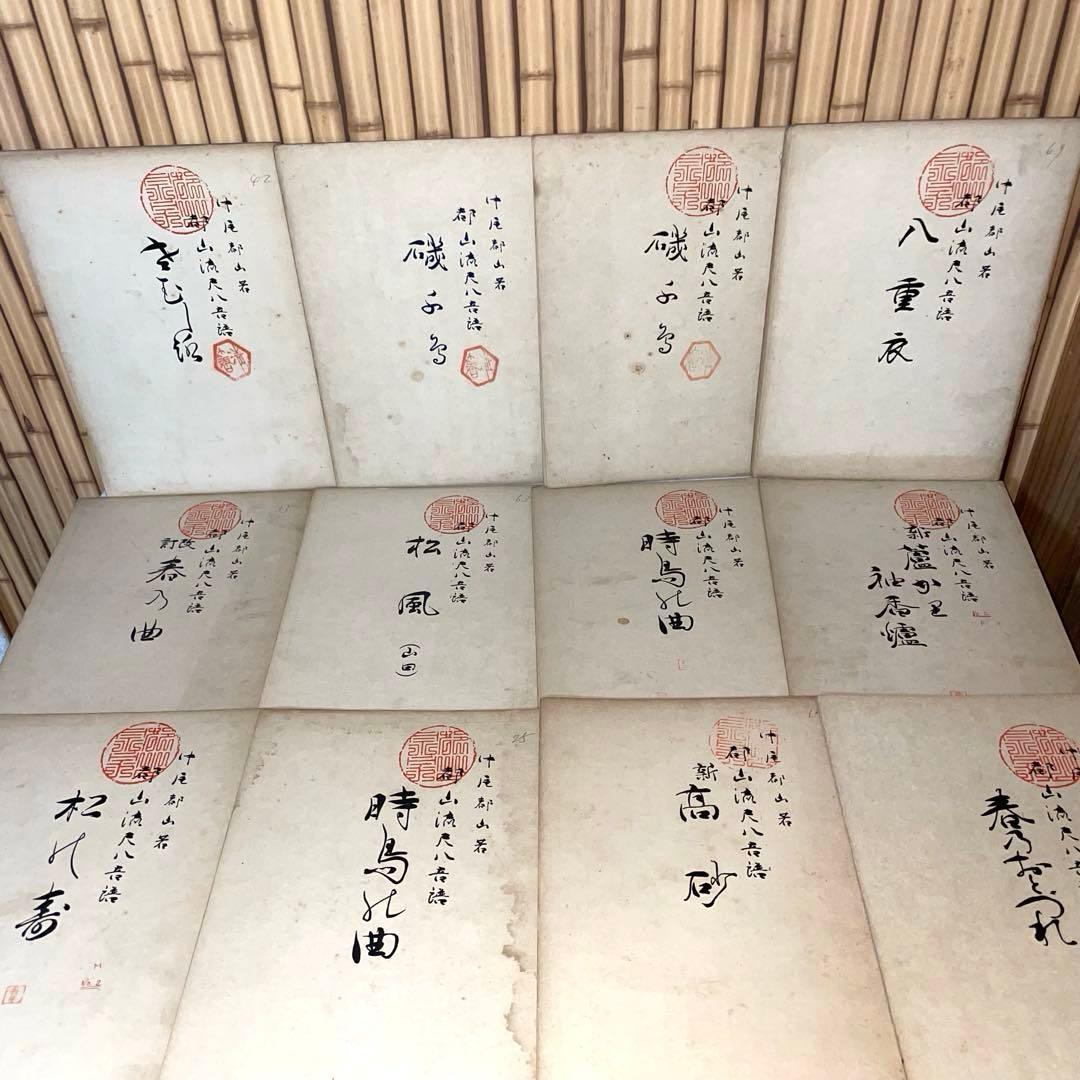 中尾都山著
都山流尺八音譜
さむし路
中尾都山著
都山流尺八音譜
磯千鳥
中尾都山著
都山流尺八音譜
磯千鳥
69
中尾都山著
都山流尺八音譜
八重衣
中尾都山著
都山流尺八音譜
改訂 春乃曲
63
中尾都山著
都山流尺八音譜
松風 (山田)
中尾都山著
都山流尺八音譜
時鳥の曲
中尾都山著
都山流尺八音譜
新蘆かり
袖香爐
中尾都山著
都山流尺八音譜
松の寿
25
中尾都山著
都山流尺八音譜
時鳥の曲
中尾都山著
都山流尺八音譜
新高砂
春乃おとづれ